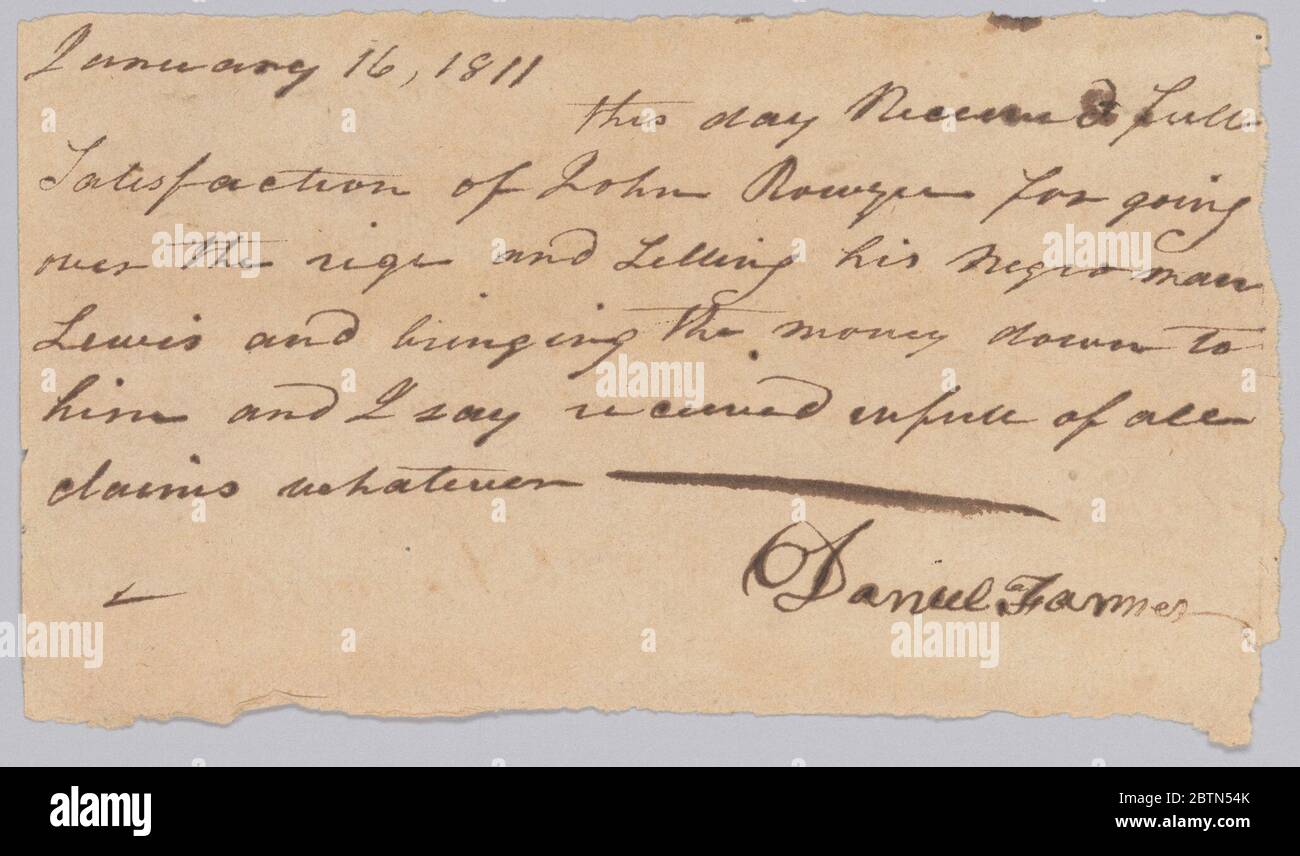 January 16, 1811
this day Received full
Satisfaction of John Rowzee for going
over the rige and Selling his Negro man
Lewis and bringing the money down to
him and I say received infull of all
claims whatever
Daniel Farmer
alamy
Image ID: 2BTN54K
www.alamy.com